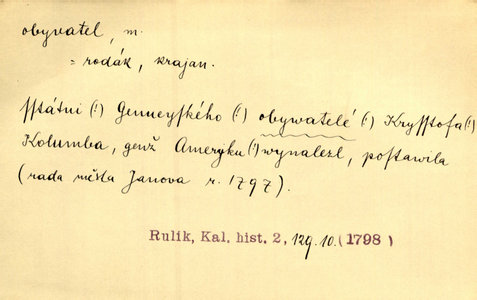 obyvatel, m.
= rodák, krajan.
sstátni (!) Genueyského (!) obywatelé (!) Krysstofa (!)
Kolumba, genž Ameryku (!) wynalezl, postawila
(rada města Janova r. 1797).
Rulík, Kal. hist. 2, 129.10. (1798)